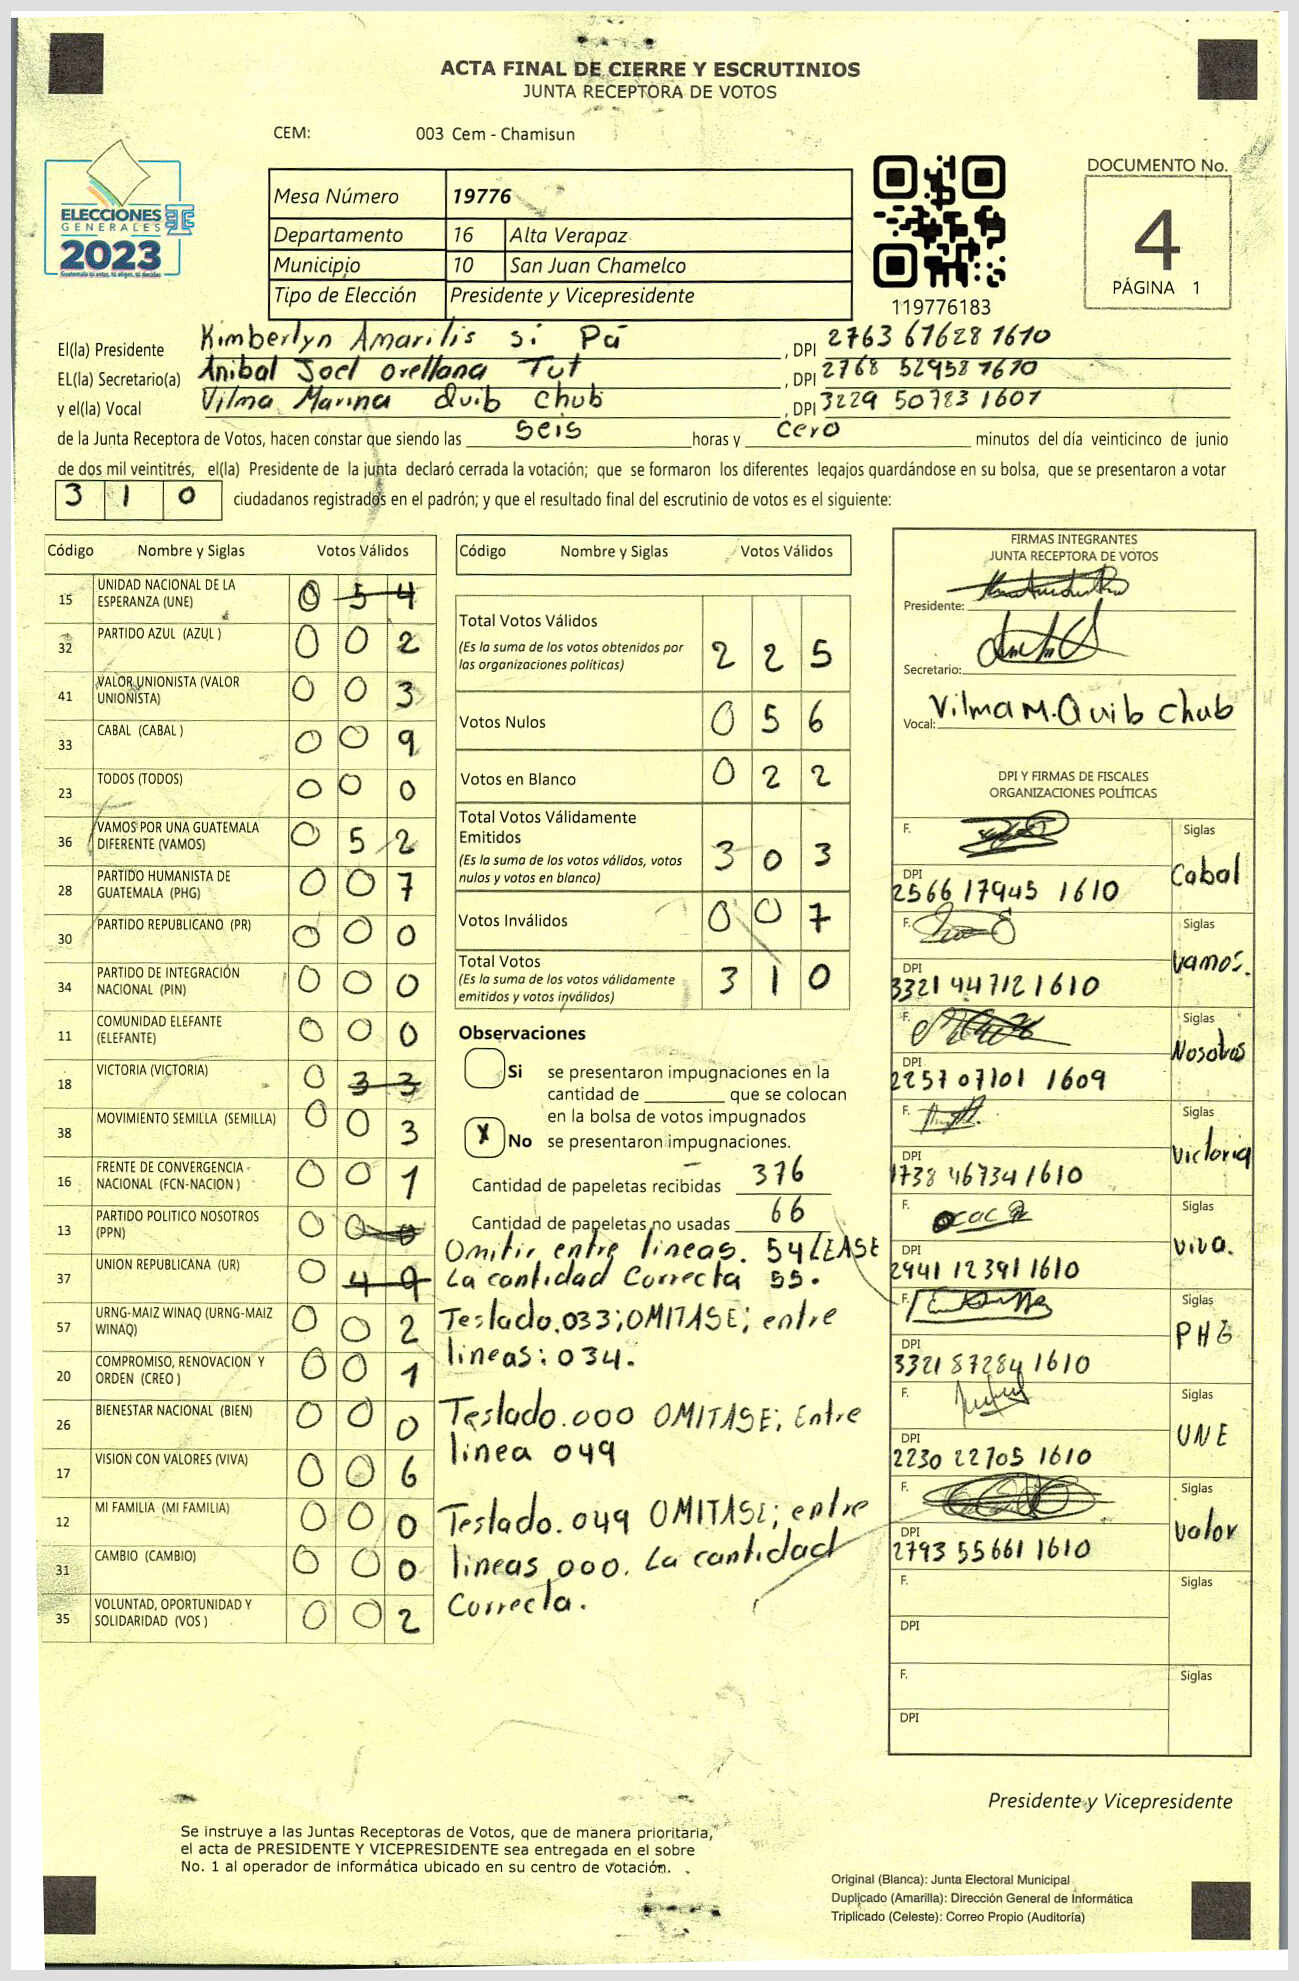 ACTA FINAL DE CIERRE Y ESCRUTINIOS
JUNTA RECEPTORA DE VOTOS
CEM: 003 Cem - Chamisun
ELECCIONES
GENERALES
2023
Mesa Número 19776
Departamento 16 Alta Verapaz
Municipio 10 San Juan Chamelco
Tipo de Elección Presidente y Vicepresidente
119776183
DOCUMENTO No.
4
PÁGINA 1
El(la) Presidente Kimberlyn Amarilis Si Pá, DPI 2763 67628 1610
EL(la) Secretario(a) Anibal Joel Orellana Tut, DPI 2768 52958 1610
y el(la) Vocal Vilma Marina Quib Chub, DPI 3229 50723 1607
de la Junta Receptora de Votos, hacen constar que siendo las seis horas y cero minutos del día veinticinco de junio
de dos mil veintitrés, el(la) Presidente de la junta declaró cerrada la votación; que se formaron los diferentes legajos guardándose en su bolsa, que se presentaron a votar
3 1 0 ciudadanos registrados en el padrón; y que el resultado final del escrutinio de votos es el siguiente:
Código Nombre y Siglas Votos Válidos
15 UNIDAD NACIONAL DE LA ESPERANZA (UNE) 0 5 4
32 PARTIDO AZUL (AZUL ) 0 0 2
41 VALOR UNIONISTA (VALOR UNIONISTA) 0 0 3
33 CABAL (CABAL ) 0 0 9
23 TODOS (TODOS) 0 0 0
36 VAMOS POR UNA GUATEMALA DIFERENTE (VAMOS) 0 5 2
28 PARTIDO HUMANISTA DE GUATEMALA (PHG) 0 0 7
30 PARTIDO REPUBLICANO (PR) 0 0 0
34 PARTIDO DE INTEGRACIÓN NACIONAL (PIN) 0 0 0
11 COMUNIDAD ELEFANTE (ELEFANTE) 0 0 0
18 VICTORIA (VICTORIA) 0 3 3
38 MOVIMIENTO SEMILLA (SEMILLA) 0 0 3
16 FRENTE DE CONVERGENCIA NACIONAL (FCN-NACION ) 0 0 1
13 PARTIDO POLITICO NOSOTROS (PPN) 0 0 0
37 UNION REPUBLICANA (UR) 0 4 9
57 URNG-MAIZ WINAQ (URNG-MAIZ WINAQ) 0 0 2
20 COMPROMISO, RENOVACION Y ORDEN (CREO ) 0 0 1
26 BIENESTAR NACIONAL (BIEN) 0 0 0
17 VISION CON VALORES (VIVA) 0 0 6
12 MI FAMILIA (MI FAMILIA) 0 0 0
31 CAMBIO (CAMBIO) 0 0 0
35 VOLUNTAD, OPORTUNIDAD Y SOLIDARIDAD (VOS ) 0 0 2
Código Nombre y Siglas Votos Válidos
Total Votos Válidos 2 2 5
(Es la suma de los votos obtenidos por
las organizaciones políticas)
Votos Nulos 0 5 6
Votos en Blanco 0 2 2
Total Votos Válidamente
Emitidos 3 0 3
(Es la suma de los votos válidos, votos
nulos y votos en blanco)
Votos Inválidos 0 0 7
Total Votos 3 1 0
(Es la suma de los votos válidamente
emitidos y votos inválidos)
Observaciones
Si se presentaron impugnaciones en la
cantidad de ________ que se colocan
en la bolsa de votos impugnados
X No se presentaron impugnaciones.
Cantidad de papeletas recibidas 376
Cantidad de papeletas no usadas 66
Omitir entre lineas. 54 LEASE
La cantidad Correcta 55.
Teslado.033; OMITASE; entre
lineas: 034.
Teslado.000 OMITASE; Entre
linea 049
Teslado.049 OMITASE; entre
lineas 000. La cantidad
Correcta.
FIRMAS INTEGRANTES
JUNTA RECEPTORA DE VOTOS
Presidente:
Secretario:
Vocal: Vilma M. Quib Chub
DPI Y FIRMAS DE FISCALES
ORGANIZACIONES POLÍTICAS
F. Siglas
DPI 2566 17945 1610 Cabal
F. Siglas
DPI 3321 44712 1610 Vamos.
F. Siglas
DPI 2257 07101 1609 Nosotros
F. Siglas
DPI 1738 46734 1610 Victoria
F. Siglas
DPI 2941 12391 1610 Viva.
F. Siglas
DPI 3321 87284 1610 PHG
F. Siglas
DPI 2230 22705 1610 UNE
F. Siglas
DPI 2793 55661 1610 Valor
F. Siglas
DPI
F. Siglas
DPI
Presidente y Vicepresidente
Se instruye a las Juntas Receptoras de Votos, que de manera prioritaria,
el acta de PRESIDENTE Y VICEPRESIDENTE sea entregada en el sobre
No. 1 al operador de informática ubicado en su centro de votación.
Original (Blanca): Junta Electoral Municipal
Duplicado (Amarilla): Dirección General de Informática
Triplicado (Celeste): Correo Propio (Auditoría)